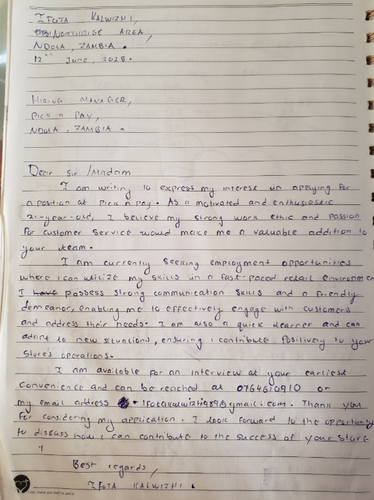 IFOTA KALWIZHI,
NORTHRISE AREA,
NDOLA, ZAMBIA.
12 June, 2025.
HIRING MANAGER,
PICK n PAY,
NDOLA, ZAMBIA.
Dear Sir/Madam
I am writing to express my interest in applying for
a position at Pick n pay. As a motivated and enthusiastic
21-year-old, I believe my strong work ethic and passion
for customer service would make me a valuable addition to
your team.
I am currently seeking employment opportunities
where I can utilize my skills in a fast-paced retail environmen
I have possess strong communication skills and a friendly
demeanor, enabling me to effectively engage with customers
and address their needs. I am also a quick learner and can
adapt to new situations, ensuring I contribute positively to your
store's operations.
I am available for an interview at your earliest
convenience and can be reached at 0764610910 or
my email address ifotakalwizhi989@gmail.com. Thank you
for considering my application. I look forward to the opportunity
to discuss how I can contribute to the success of your store
Best regards,
IFOTA KALWIZHI.